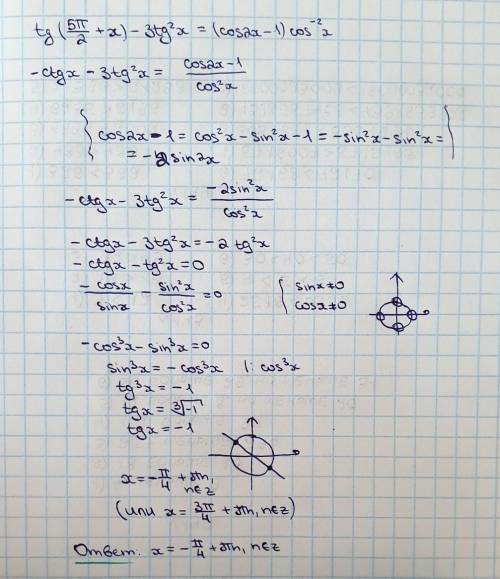 tg(5π/2 + x) - 3tg²x = (cos2x-1) cos⁻²x
-ctgx - 3tg²x = (cos2x-1)/cos²x
{ cos2x-1 = cos²x - sin²x - 1 = -sin²x - sin²x =
= -2sin²x }
-ctgx - 3tg²x = -2sin²x/cos²x
-ctgx - 3tg²x = -2tg²x
-ctgx - tg²x = 0
-cosx/sinx - sin²x/cos²x = 0 { sinx≠0
cosx≠0
-cos³x - sin³x = 0
sin³x = -cos³x |: cos³x
tg³x = -1
tgx = ∛-1
tgx = -1
x = -π/4 + πn,
n∈z
(или x = 3π/4 + πn, n∈z)
Ответ: x = -π/4 + πn, n∈z